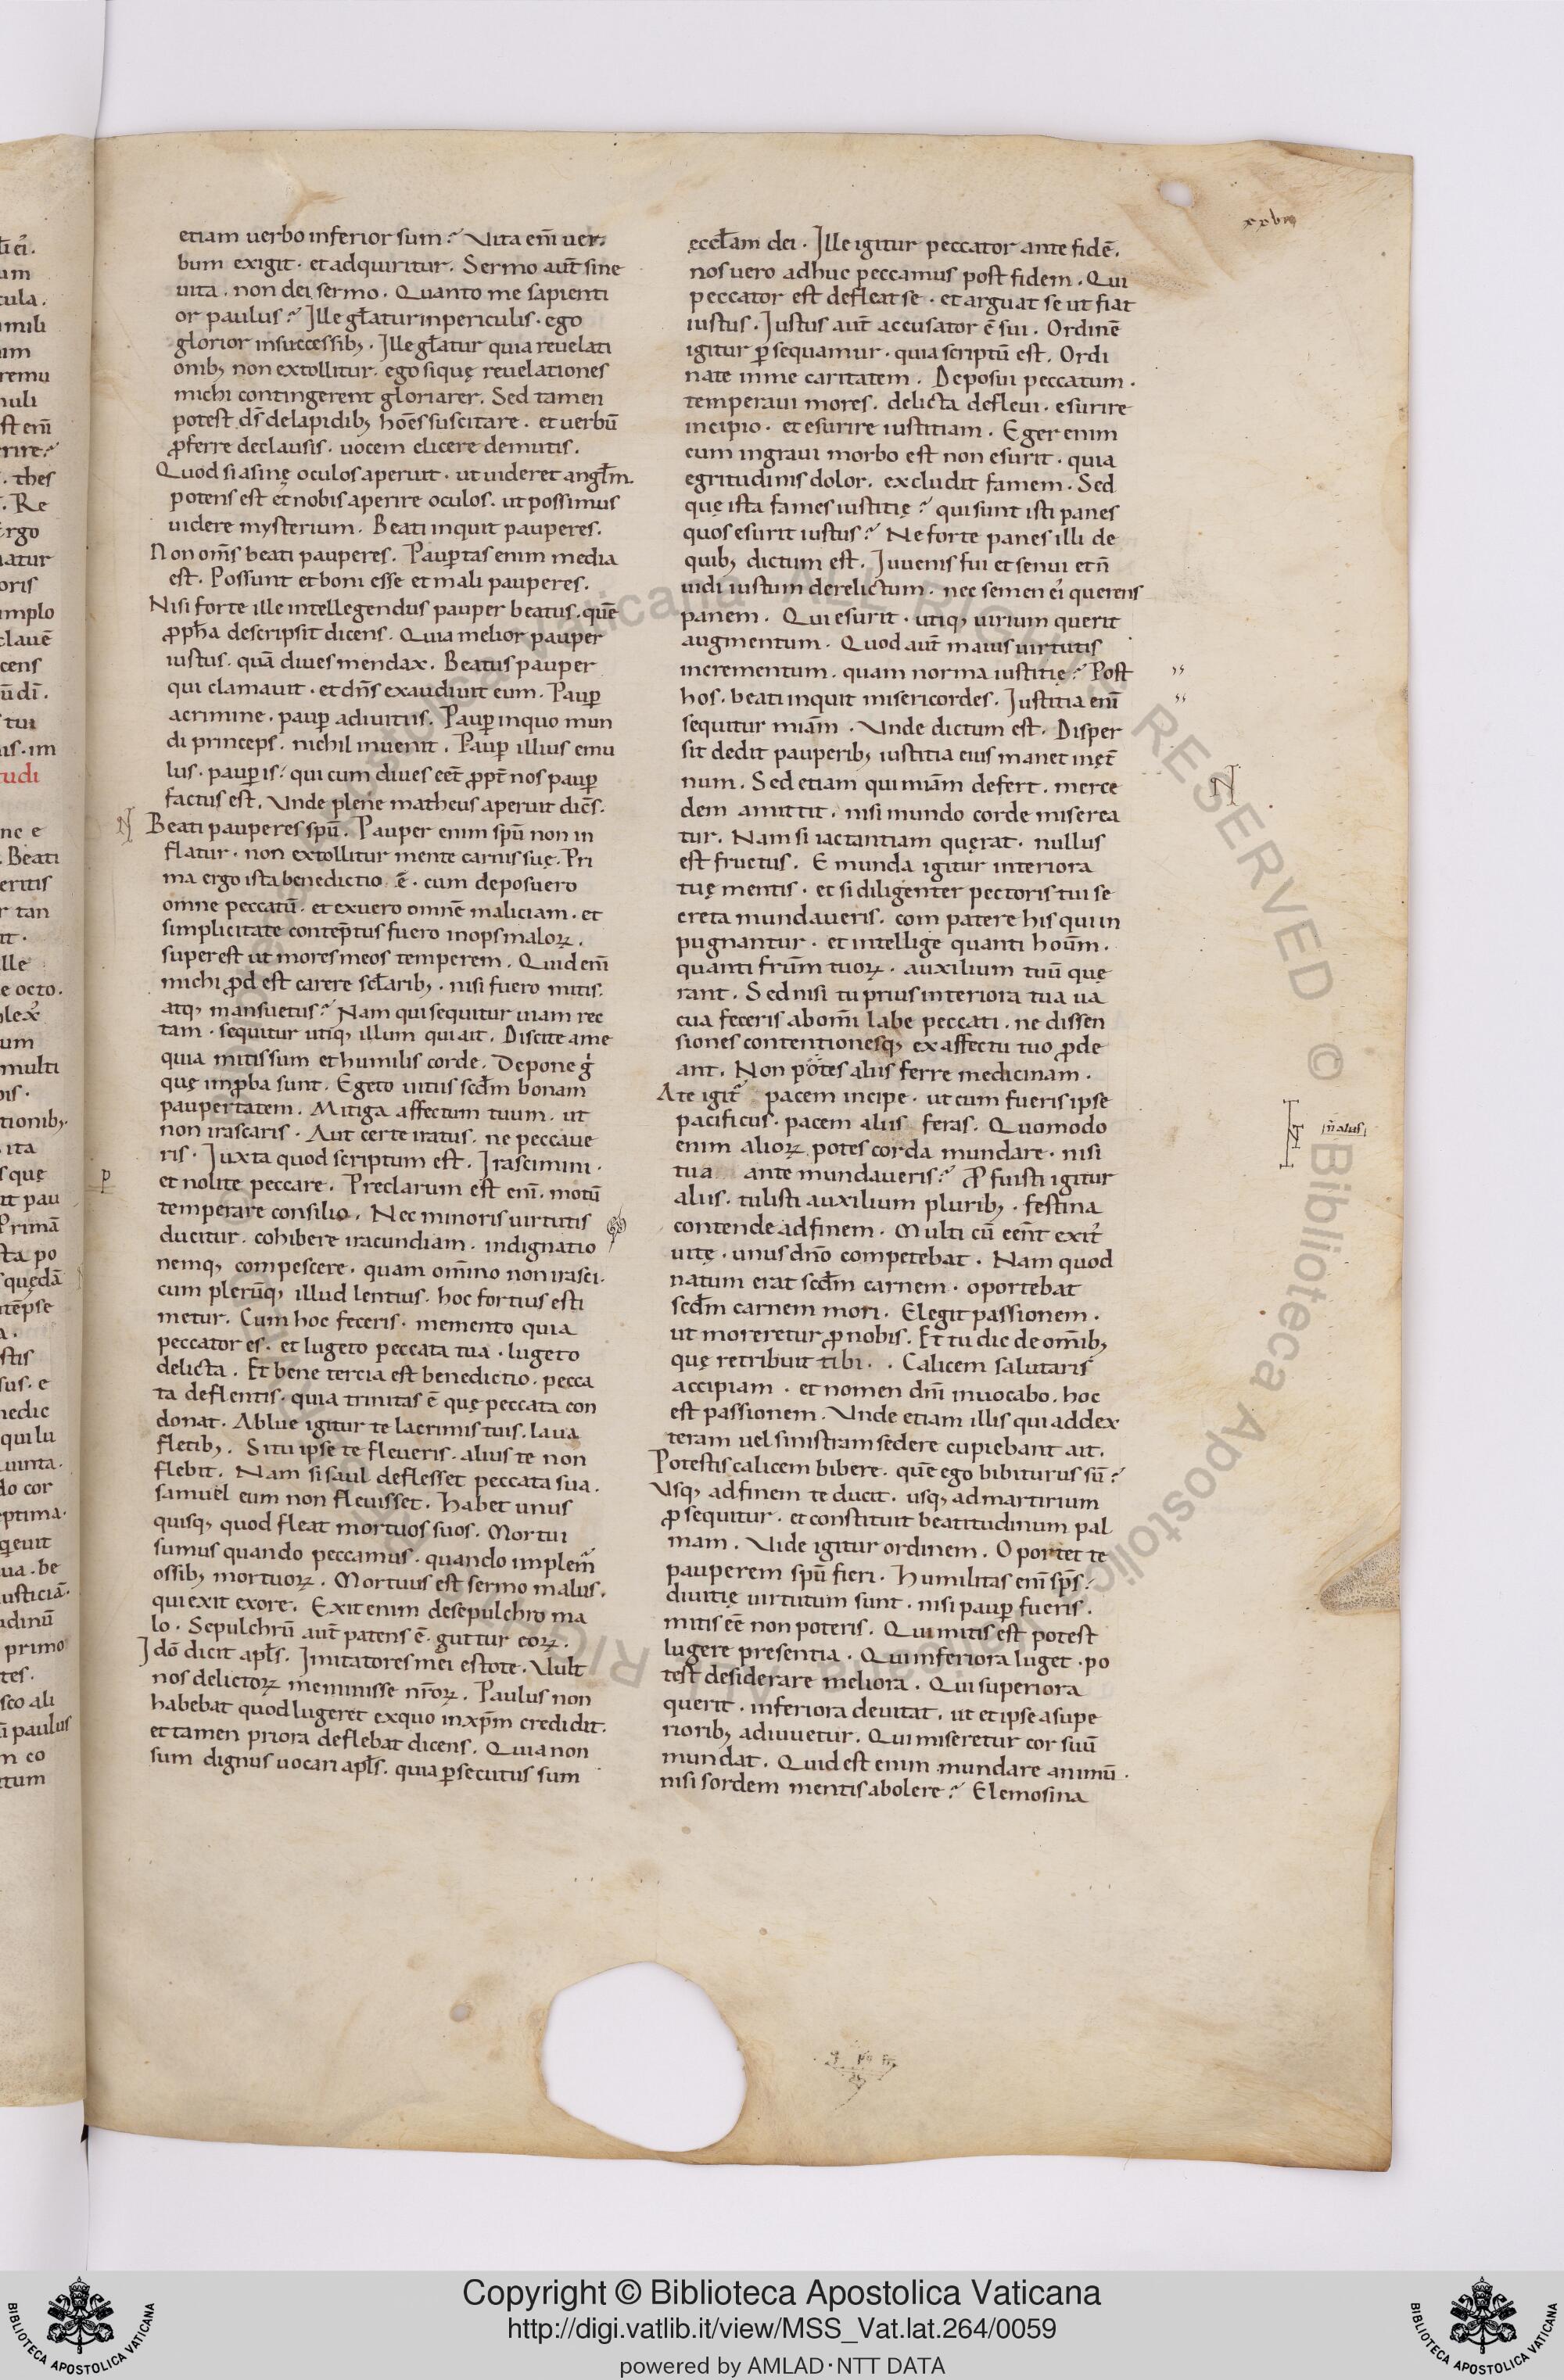 xxviii
etiam uerbo inferior sum? Vita em̄ uer
bum exigit · et adquiritur. Sermo aut̄ sine
uita . non dei sermo . Quanto me sapienti
or paulus? Ille gl̄atur in periculis · ego
glorior in successib; . Ille gl̄atur quia reuelati
onib; non extollitur. ego si quę reuelationes
michi contingerent gloriarer. Sed tamen
potest ds̄ de lapidib; hoēs suscitare · et uerbū
ꝓferre de clausis · uocem elicere de mutis .
Quod si asinę oculos aperuit · ut uideret angl̄m.
potens est et nobis aperire oculos . ut possimus
uidere mysterium . Beati inquit pauperes.
Non om̄s beati pauperes . Paup̄tas enim media
est . Possunt et boni esse et mali pauperes.
Nisi forte ille intellegendus pauper beatus . quē
ꝓph̄a descripsit dicens . Quia melior pauper
iustus . quā diues mendax . Beatus pauper
qui clamauit · et dn̄s exaudiuit eum . Paup̄
a crimine . paup̄ a diuitiis . Paup̄ in quo mun
di princeps . nichil inuenit . Paup̄ illius emu
lus · paup̄is? qui cum diues eet̄ ꝓpt̄ nos paup̄
factus est . Vnde plene matheus aperuit dicēs.
Beati pauperes spū . Pauper enim spū non in
flatur · non extollitur mente carnis suę . Pri
ma ergo ista benedictio ē · cum deposuero
omne peccatū · et exuero omnē maliciam . et
simplicitate contēptus fuero inops maloꝝ .
superest ut mores meos temperem . Quid em̄
michi ꝓdest carere scl̄arib; · nisi fuero mitis .
atq; mansuetus? Nam qui sequitur uiam rec
tam · sequitur utiq; illum qui ait . Discite a me
quia mitis sum et humilis corde . Depone g̍
quę imꝓba sunt . Egeto uitiis scd̄m bonam
paupertatem . Mitiga affectum tuum . ut
non irascaris . Aut certe iratus . ne peccaue
ris . Iuxta quod scriptum est . Irascimini .
et nolite peccare . Preclarum est eni . motū
temperare consilio . Nec minoris uirtutis
ducitur . cohibere iracundiam . indignatio
nemq; compescere . quam om̄ino non irasci .
cum plerūq; illud lentius . hoc fortius esti
metur . Cum hoc feceris . memento quia
peccator es . et lugeto peccata tua . lugeto
delicta . Et bene tercia est benedictio . pecca
ta deflentis . quia trinitas ē quę peccata con
donat . Ablue igitur te lacrimis tuis . laua
fletib; . Si tu ipse te fleueris . alius te non
flebit . Nam si saul deflesset peccata sua .
samuel eum non fleuisset . Habet unus
quisq; quod fleat mortuos suos . Mortui
sumus quando peccamus . quando implem̃
ossib; mortuoꝝ . Mortuus est sermo malus .
qui exit ex ore . Exit enim de sepulchro ma
lo . Sepulchrū aut̄ patens ē . guttur eoꝝ .
Idō dicit apl̄s . Imitatores mei estote . Vult
nos delictoꝝ meminisse nr̄oꝝ . Paulus non
habebat quod lugeret ex quo in xp̄m credidit .
et tamen priora deflebat dicens . Quia non
sum dignus uocari apl̄s . quia p̄secutus sum
ęccl̄am dei . Ille igitur peccator ante fidē .
nos uero adhuc peccamus post fidem . Qui
peccator est defleat se . et arguat se ut fiat
iustus . Iustus aut̄ accusator ē sui . Ordinē
igitur p̄sequamur . quia scriptū est . Ordi
nate in me caritatem . Deposui peccatum .
temperaui mores . delicta defleui . esurire
incipio . et esurire iustitiam . Eger enim
cum in graui morbo est non esurit . quia
egritudinis dolor . excludit famem . Sed
quę ista fames iustitię? qui sunt isti panes
quos esurit iustus? Ne forte panes illi de
quib; dictum est . Iuuenis fui et senui et n̄
uidi iustum derelictum . nec semen ei̍ querens
panem . Qui esurit . utiq; uirium querit
augmentum . Quod aut̄ maius uirtutis
incrementum . quam norma iustitię? Post
hos . beati inquit misericordes . Iustitia enī
sequitur miām . Vnde dictum est . Disper
sit dedit pauperib; iustitia eius manet inęt̄
num . Sed etiam qui miām defert . merce
dem amittit . nisi mundo corde miserea
tur . Nam si iactantiam quęrat . nullus
est fructus . Emunda igitur interiora
tuę mentis . et si diligenter pectoris tui se
creta mundaueris . com patere his qui in
pugnantur . et intellige quanti hoūm .
quanti fr̄um tuoꝝ . auxilium tuū quę
rant . Sed nisi tu prius interiora tua ua
cua feceris ab om̄i labe peccati . ne dissen
siones contentionesq; ex affectu tuo ꝓde
ant . Non potes aliis ferre medicinam .
A te igit̃ pacem incipe . ut cum fueris ipse
pacificus . pacem aliis feras . Quomodo
enim alioꝝ potes corda mundare . nisi
tua ante mundaueris? Ꝓfuisti igitur
aliis . tulisti auxilium plurib; . festina
contende ad finem . Multi cū eent̄ exit̍
uitę . unus dn̄o competebat . Nam quod
natum erat scd̄m carnem . oportebat
scd̄m carnem mori . Elegit passionem .
ut moreretur ꝓ nobis . Et tu dic de om̄ib;
quę retribuit tibi . . Calicem salutaris
accipiam . et nomen dn̄i inuocabo . hoc
est passionem . Vnde etiam illis qui ad dex
teram uel sinistram sedere cupiebant ait .
Potestis calicem bibere . quē ego bibiturus sū?
Vsq; ad finem te ducit . usq; ad martirium
ꝓsequitur . et constituit beatitudinum pal
mam . Vide igitur ordinem . Oportet te
pauperem spū fieri . Humilitas enī sp̄s?
diuitię uirtutum sunt . nisi paup̄ fueris .
mitis eē non poteris . Qui mitis est potest
lugere presentia . Qui inferiora luget . po
test desiderare meliora . Qui superiora
querit . inferiora deuitat . ut et ipse a supe
riorib; adiuuetur . Qui miseretur cor suū
mundat . Quid est enim mundare animū .
nisi sordem mentis abolere? Elemosina
Copyright © Biblioteca Apostolica Vaticana
http://digi.vatlib.it/view/MSS_Vat.lat.264/0059
powered by AMLAD·NTT DATA
BIBLIOTECA APOSTOLICA VATICANA
BIBLIOTECA APOSTOLICA VATICANA